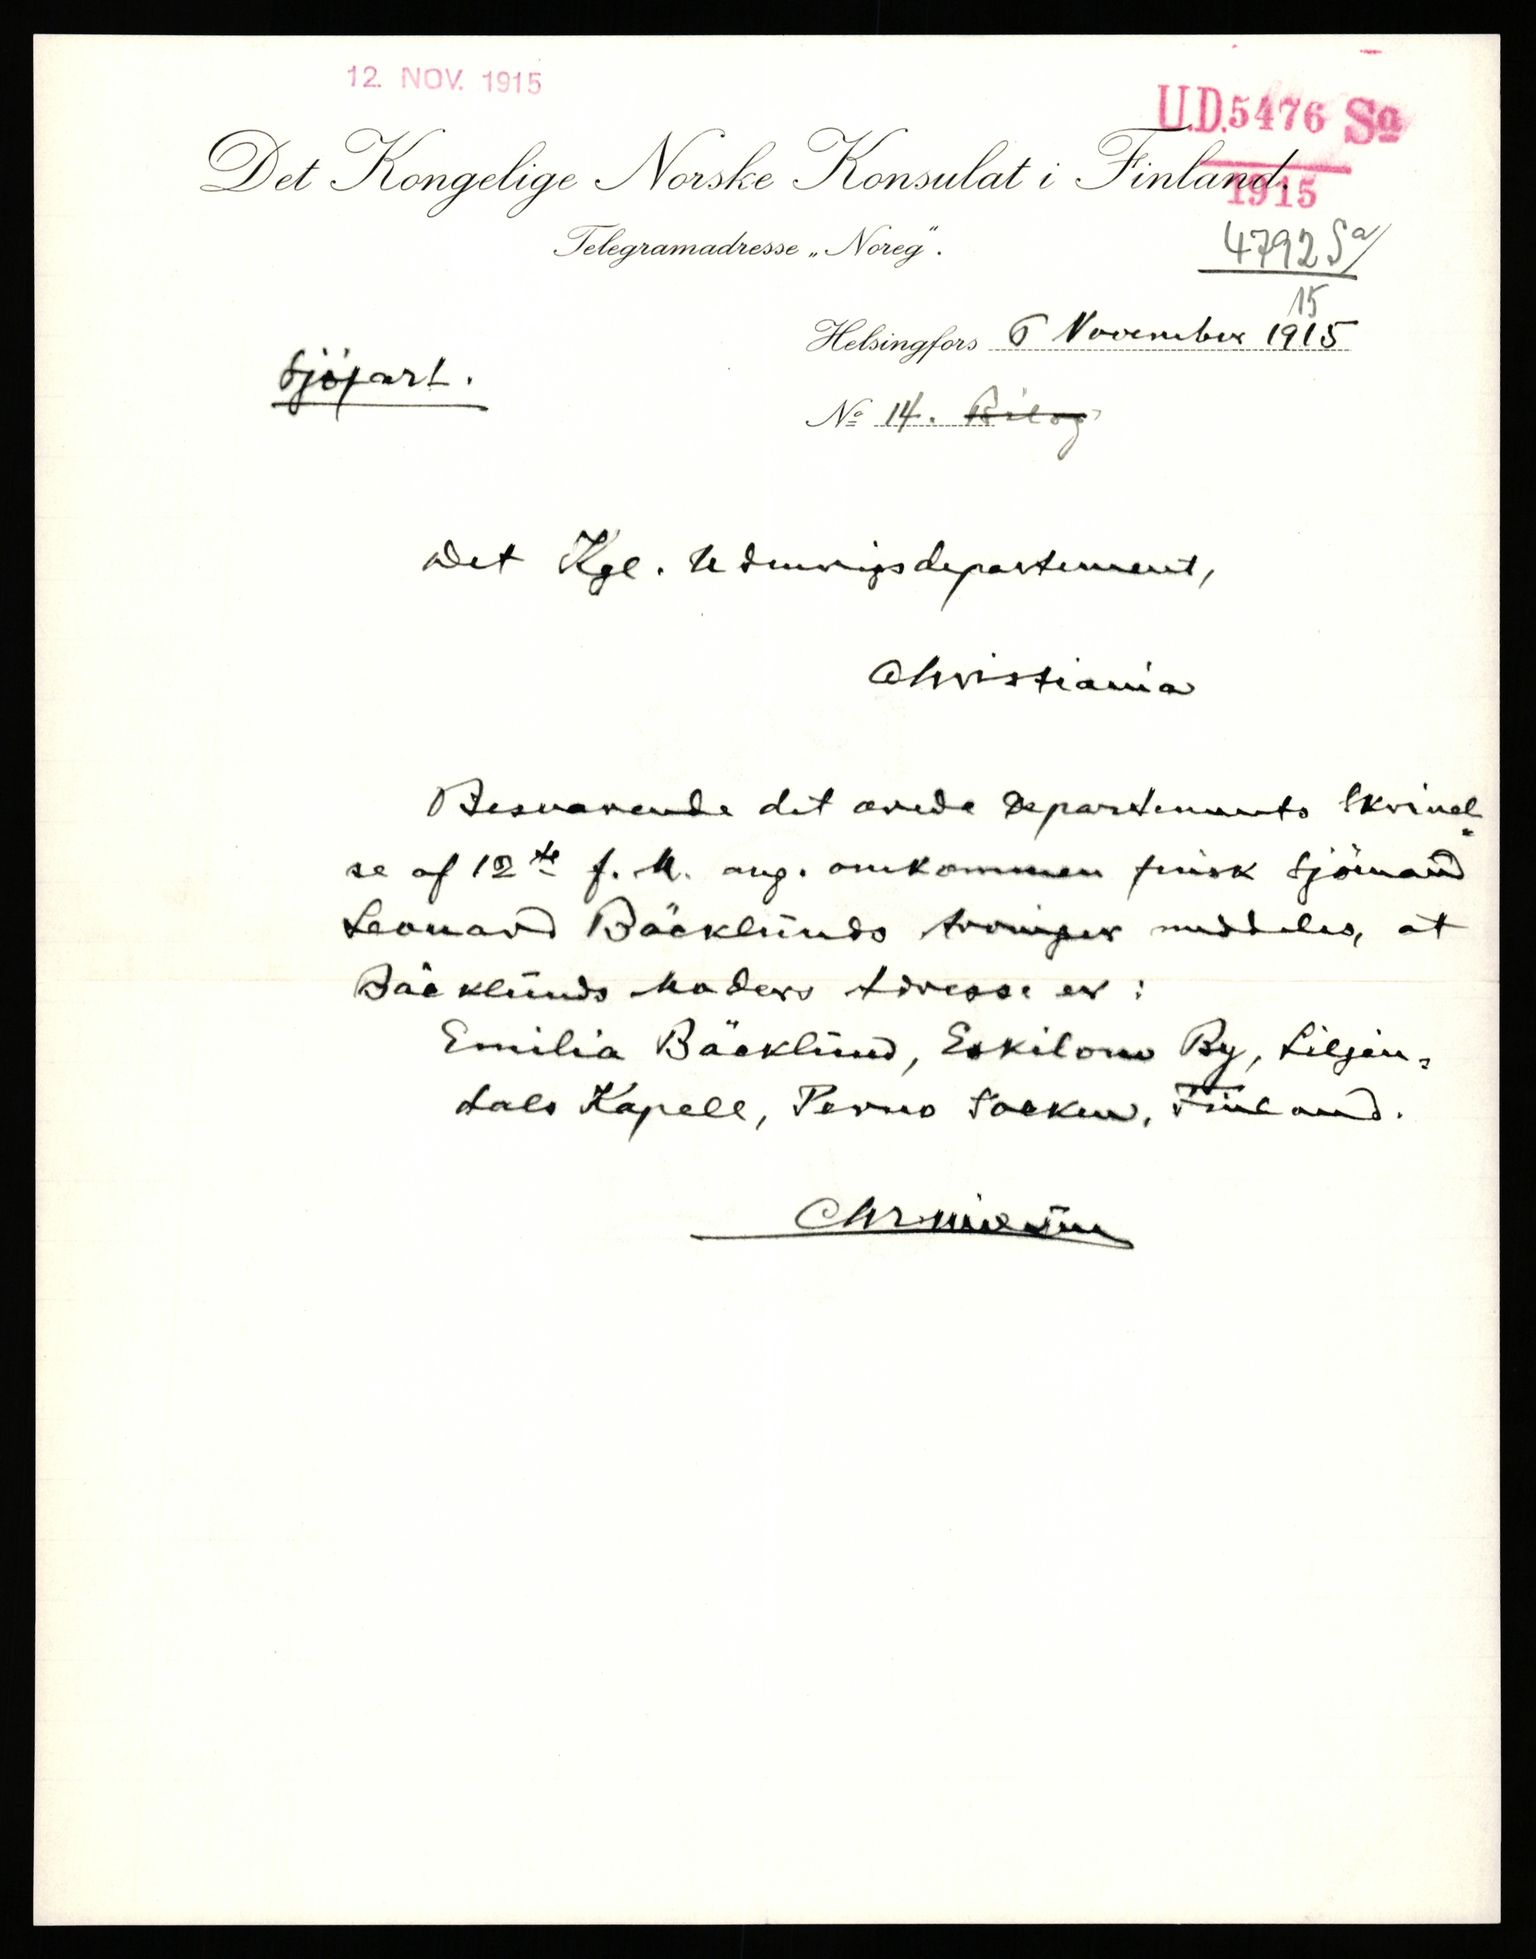 12. NOV. 1915
U.D. 5476 Sa
1915
Det Kongelige Norske Konsulat i Finland.
Telegramadresse „Noreg“.
4792 Sa/
15
Helsingfors 6 November 1915
Sjöfart.
No 14. Bilag
Det Kgl. Udenrigsdepartement,
Christiania
Besvarende det ærede Departements Skrivel-
se af 12te f. M. ang. omkommen finsk Sjömand
Leonard Bäcklunds arvinger meddeles, at
Bäcklunds Moders Adresse er:
Emilia Bäcklund, Eskilom By, Liljen-
dals Kapell, Perno Socken, Finland.